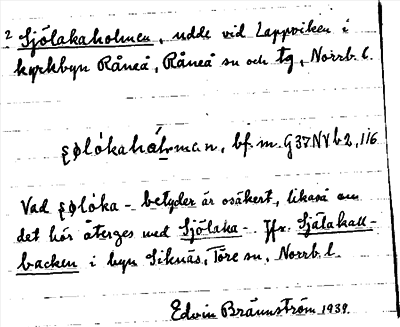 2 Sjölakaholmen, udde vid Lappviken i
kyrkbyn Råneå, Råneå sn och tg, Norrb. l.
bf. m. G37NV b2, 116
Vad ʂølóka- betyder är osäkert, likaså om
det här återges med Sjölaka-. Jfr. Själakall-
backen i byn Siknäs, Töre sn, Norrb. l.
Edvin Brännström 1939.